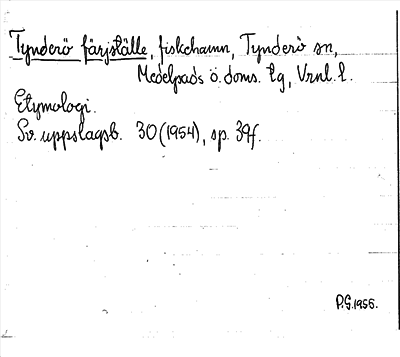 Tynderö färjställe, fiskehamn, Tynderö sn,
Medelpads ö. doms. tg, Vrnl. l.
Etymologi.
Sv. uppslagsb. 30 (1954), sp. 39f.
P.G. 1956.